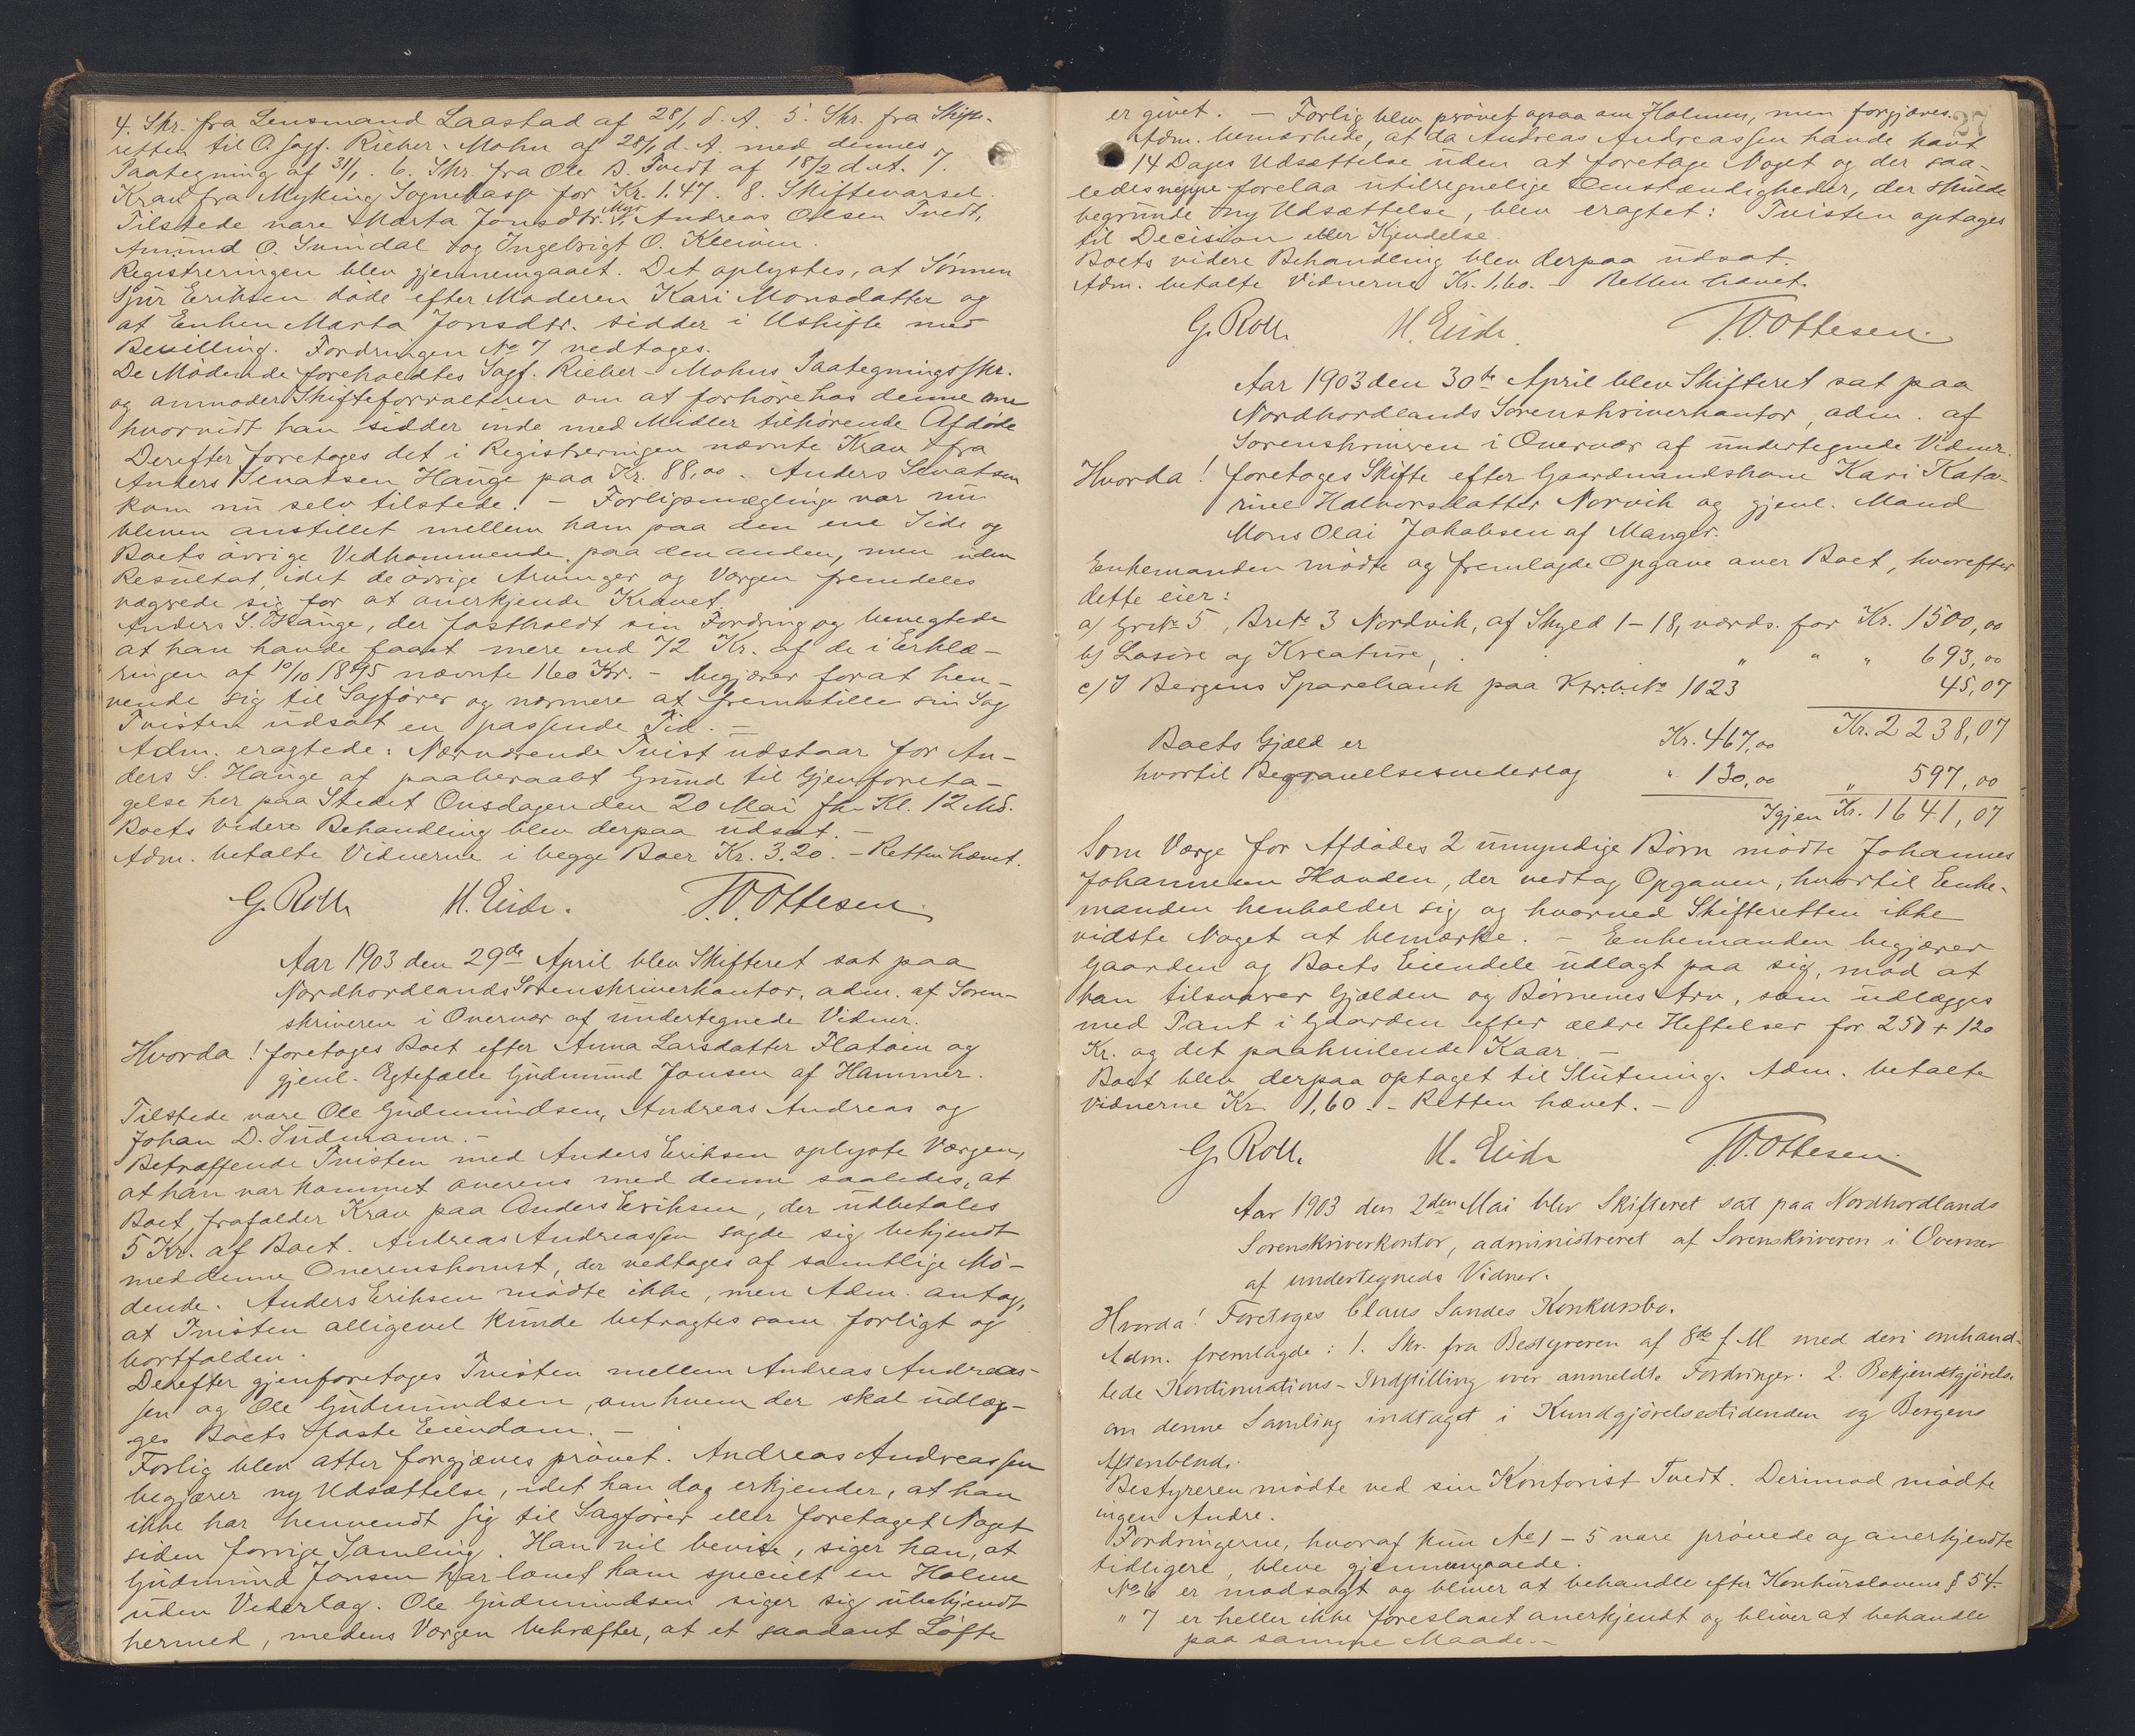 4. Skr. fra Lensmand Laastad af 28/1 d. A. 5. Skr. fra Skifte-
retten til O.sagf. Rieber-Mohn af 28/1 d. A. med dennes
Paategning af 31/1. 6. Skr. fra Ole B. Tvedt af 18/2 d. A. 7.
Krav fra Myking Sognekasse for Kr. 1.47. 8. Skiftevarsel.
Tilstede vare Marta Jonsdtr. Myr, Andreas Olsen Tvedt,
Amund O. Svindal og Ingebrigt O. Kleiven.
Registreringen blev gjennemgaaet. Det oplystes, at Sönnen
Sjur Eriksen döde efter Moderen Kari Monsdatter og
at Enken Marta Jonsdtr. sidder i Uskifte med
Bevilling. Fordringen No 7 vedtages.
De Mödende foreholdtes Sagf. Rieber-Mohns Paategningsskr.
og anmoder Skifteforvalteren om at forhöre hos denne om
hvorvidt han sidder inde med Midler tilhörende Afdöde
Derefter foretages det i Registreringen nævnte Krav fra
Anders Senatsen Hauge paa Kr. 88,00. Anders Senatsen
kom nu selv tilstede. - Forligsmægling var nu
bleven anstillet mellem ham paa den ene Side og
Boets övrige Vedkommende paa den anden, men uden
Resultat, idet de övrige Arvinger og Værgen fremdeles
vægrede sig for at anerkjende Kravet.
Anders S. Hauge, der fastholdt sin Fordring og benegtede
at han havde faaet mere end 72 Kr. af de i Erklæ-
ringen af 10/10 1895 nævnte 160 Kr. - begjærer for at hen-
vende sig til Sagförer og nærmere at fremstille sin Sag
Tvisten udsat en passende Tid. -
Adm. eragtede: Nærværende Tvist udstaar for An-
ders S. Hauge af paaberaabt Grund til Gjenforeta-
gelse her paa Stedet Onsdagen den 20 Mai fk. Kl. 12 Md.
Boets videre Behandling blev derpaa udsat. -
Adm. betalte Vidnerne i begge Boer Kr. 3.20. - Retten hævet.
G. Roll H. Eide. T.O. Ottesen.
Aar 1903 den 29de April blev Skifteret sat paa
Nordhordlands Sorenskriverkontor, adm. af Soren-
skriveren i Overvær af undertegnede Vidner.
Hvorda! foretages Boet efter Anna Larsdatter Flatöen og
gjenl. Egtefælle Gudmund Jonsen af Hammer.
Tilstede vare Ole Gudmundsen, Andreas Andreas og
Johan D. Sudmann. -
Betræffende Tvisten med Anders Eriksen oplyste Værgen,
at han var kommet overens med denne saaledes, at
Boet frafalder Krav paa Anders Eriksen, der udbetales
5 Kr. af Boet. Andreas Andreassen sagde sig bekjendt
med denne Overenskomst, der vedtages af samtlige Mö-
dende. Anders Eriksen mödte ikke, men Adm. antog,
at Tvisten alligevel kunde betragtes som forligt og
bortfalden.
Derefter gjenforetages Tvisten mellem Andreas Andreas-
sen og Ole Gudmundsen, om hvem der skal udlæg-
ges Boets faste Eiendom. -
Forlig blev atter forgjæves prövet. Andreas Andreassen
begjærer ny Udsættelse, idet han dog erkjender, at han
ikke har henvendt sig til Sagförer eller foretaget Noget
siden forrige Samling. Han vil bevise, siger han, at
Gudmund Jonsen har lovet ham specielt en Holme
uden Vederlag. Ole Gudmundsen siger sig ubekjendt
hermed, medens Værgen bekræfter, at et saadant Löfte
27
er givet. - Forlig blev prövet ogsaa om Holmen, men forgjæves.
Adm. bemærkede, at da Andreas Andreassen havde havt
14 Dages Udsættelse uden at foretage Noget og der saa-
ledes neppe forelaa utilregnelige Omstændigheder, der skulde
begrunde ny Udsættelse, blev eragtet: Tvisten optages
til Decision eller Kjendelse.
Boets videre Behandling blev derpaa udsat.
Adm. betalte Vidnerne Kr. 1.60. - Retten hævet.
G. Roll. H. Eide. T.O. Ottesen.
Aar 1903 den 30te April blev Skifteret sat paa
Nordhordlands Sorenskriverkontor, adm. af
Sorenskriveren i Overvær af undertegnede Vidner.
Hvorda! foretages Skifte efter Gaardmandskone Kari Kata-
rine Halvorsdatter Norvik og gjenl. Mand
Mons Olai Jakobsen af Manger.
Enkemanden mödte og fremlagde Opgave over Boet, hvorefter
dette eier:
a) Grno 5, Brno 3 Nordvik, af Skyld 1-18, værds. for Kr. 1500,00
b) Lösöre og Kreature, " " " 693,00
c) I Bergens Sparebank paa Ktrbno 1023 45,07
Kr. 2238,07
Boets Gjæld er Kr. 467,00
hvortil Begravelsesvederlag " 130,00 " 597,00
Igjen Kr. 1641,07
Som Værge for Afdödes 2 umyndige Börn mödte Johannes
Johannesen Hovden, der vedtog Opgaven, hvortil Enke-
manden henholder sig og hvorved Skifteretten ikke
vidste Noget at bemærke. - Enkemanden begjærer
Gaarden og Boets Eiendele udlagt paa sig, mod at
han tilsvarer Gjælden og Börnenes Arv, som udlægges
med Pant i Gaarden efter ældre Heftelser for 250 + 120
Kr. og det paahvilende Kaar. -
Boet blev derpaa optaget til Slutning. Adm. betalte
Vidnerne Kr. 1,60. - Retten hævet. -
G. Roll. H. Eide T.O. Ottesen.
Aar 1903 den 2den Mai blev Skifteret sat paa Nordhordlands
Sorenskriverkontor, administreret af Sorenskriveren i Overvær
af undertegnede Vidner.
Hvorda! Foretoges Claus Sandes Konkursbo.
Adm. fremlagde: 1. Skr. fra Bestyreren af 8de f. M. med deri omhand-
lede Kontinuations-Indstilling over anmeldte Fordringer. 2. Bekjendtgjörelse
om denne Samling indtaget i Kundgjörelsestidenden og Bergens
Aftenblad.
Bestyreren mödte ved sin Kontorist Tvedt. Derimod mödte
ingen Andre.
Fordringerne, hvoraf kun No 1-5 vare prövede og anerkjendte
tidligere, bleve gjennemgaaede.
No 6 er modsagt og bliver at behandle efter Konkurslovens § 54.
" 7 er heller ikke foreslaaet anerkjendt og bliver at behandle
paa samme Maade. -